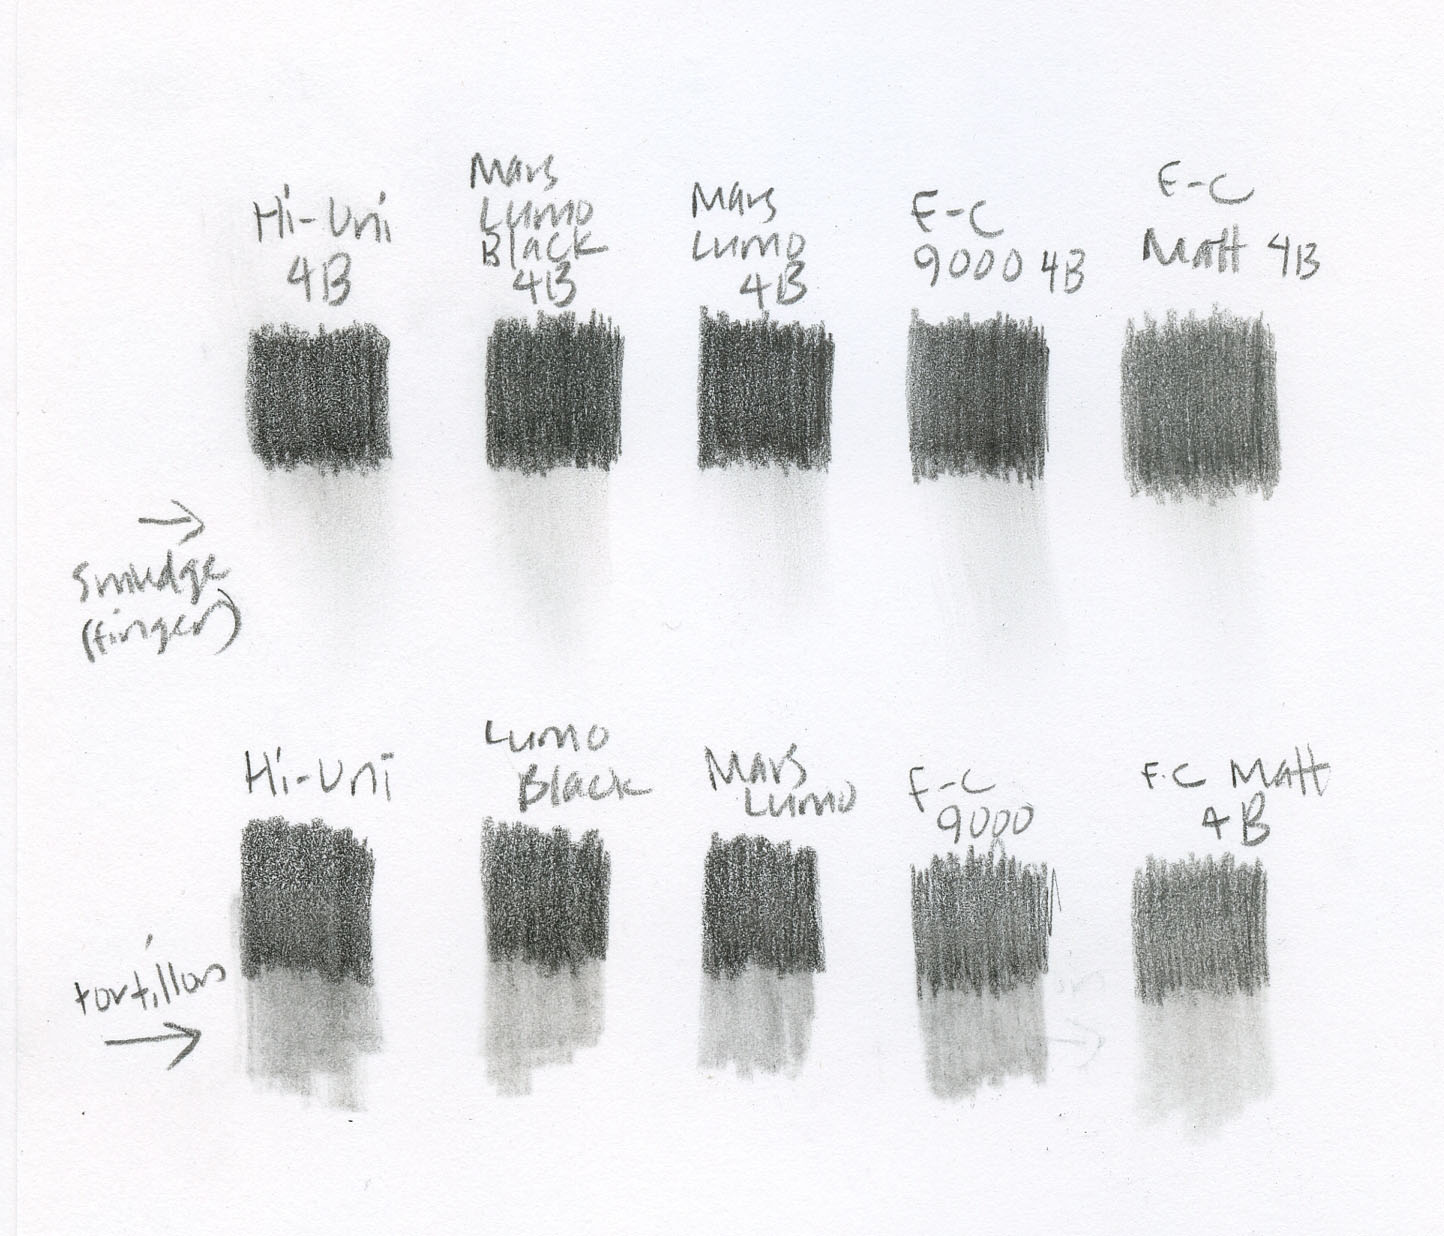 Hi-Uni
4B
Mars
Lumo
Black
4B
Mars
Lumo
4B
F-C
9000 4B
F-C
Matt 4B
Smudge
(finger)
Hi-Uni
Lumo
Black
Mars
Lumo
F-C
9000
F-C Matt
4B
tortillon